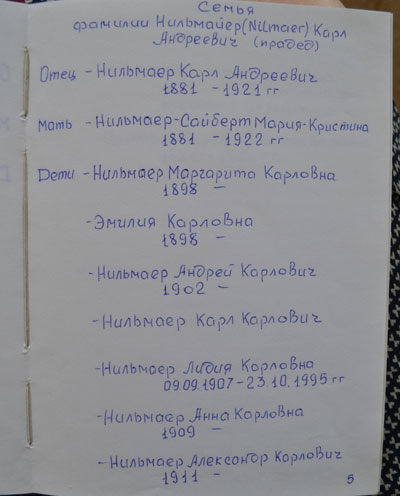 Семья
фамилии Нильмайер(Nilmaer) Карл
Андреевич (прадед)
Отец - Нильмаер Карл Андреевич
1881 - 1921 гг
Мать - Нильмаер-Сайберт Мария-Кристина
1881 - 1922 гг
Дети - Нильмаер Маргарита Карловна
1898 -
- Эмилия Карловна
1898 -
- Нильмаер Андрей Карлович
1902 -
- Нильмаер Карл Карлович
- Нильмаер Лидия Карловна
09.09.1907 - 23.10.1995 гг
- Нильмаер Анна Карловна
1909 -
- Нильмаер Александр Карлович
1911 -
5